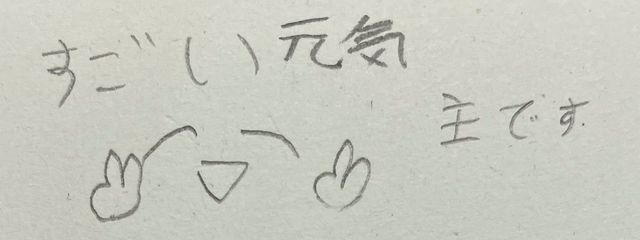 すごい元気
主です